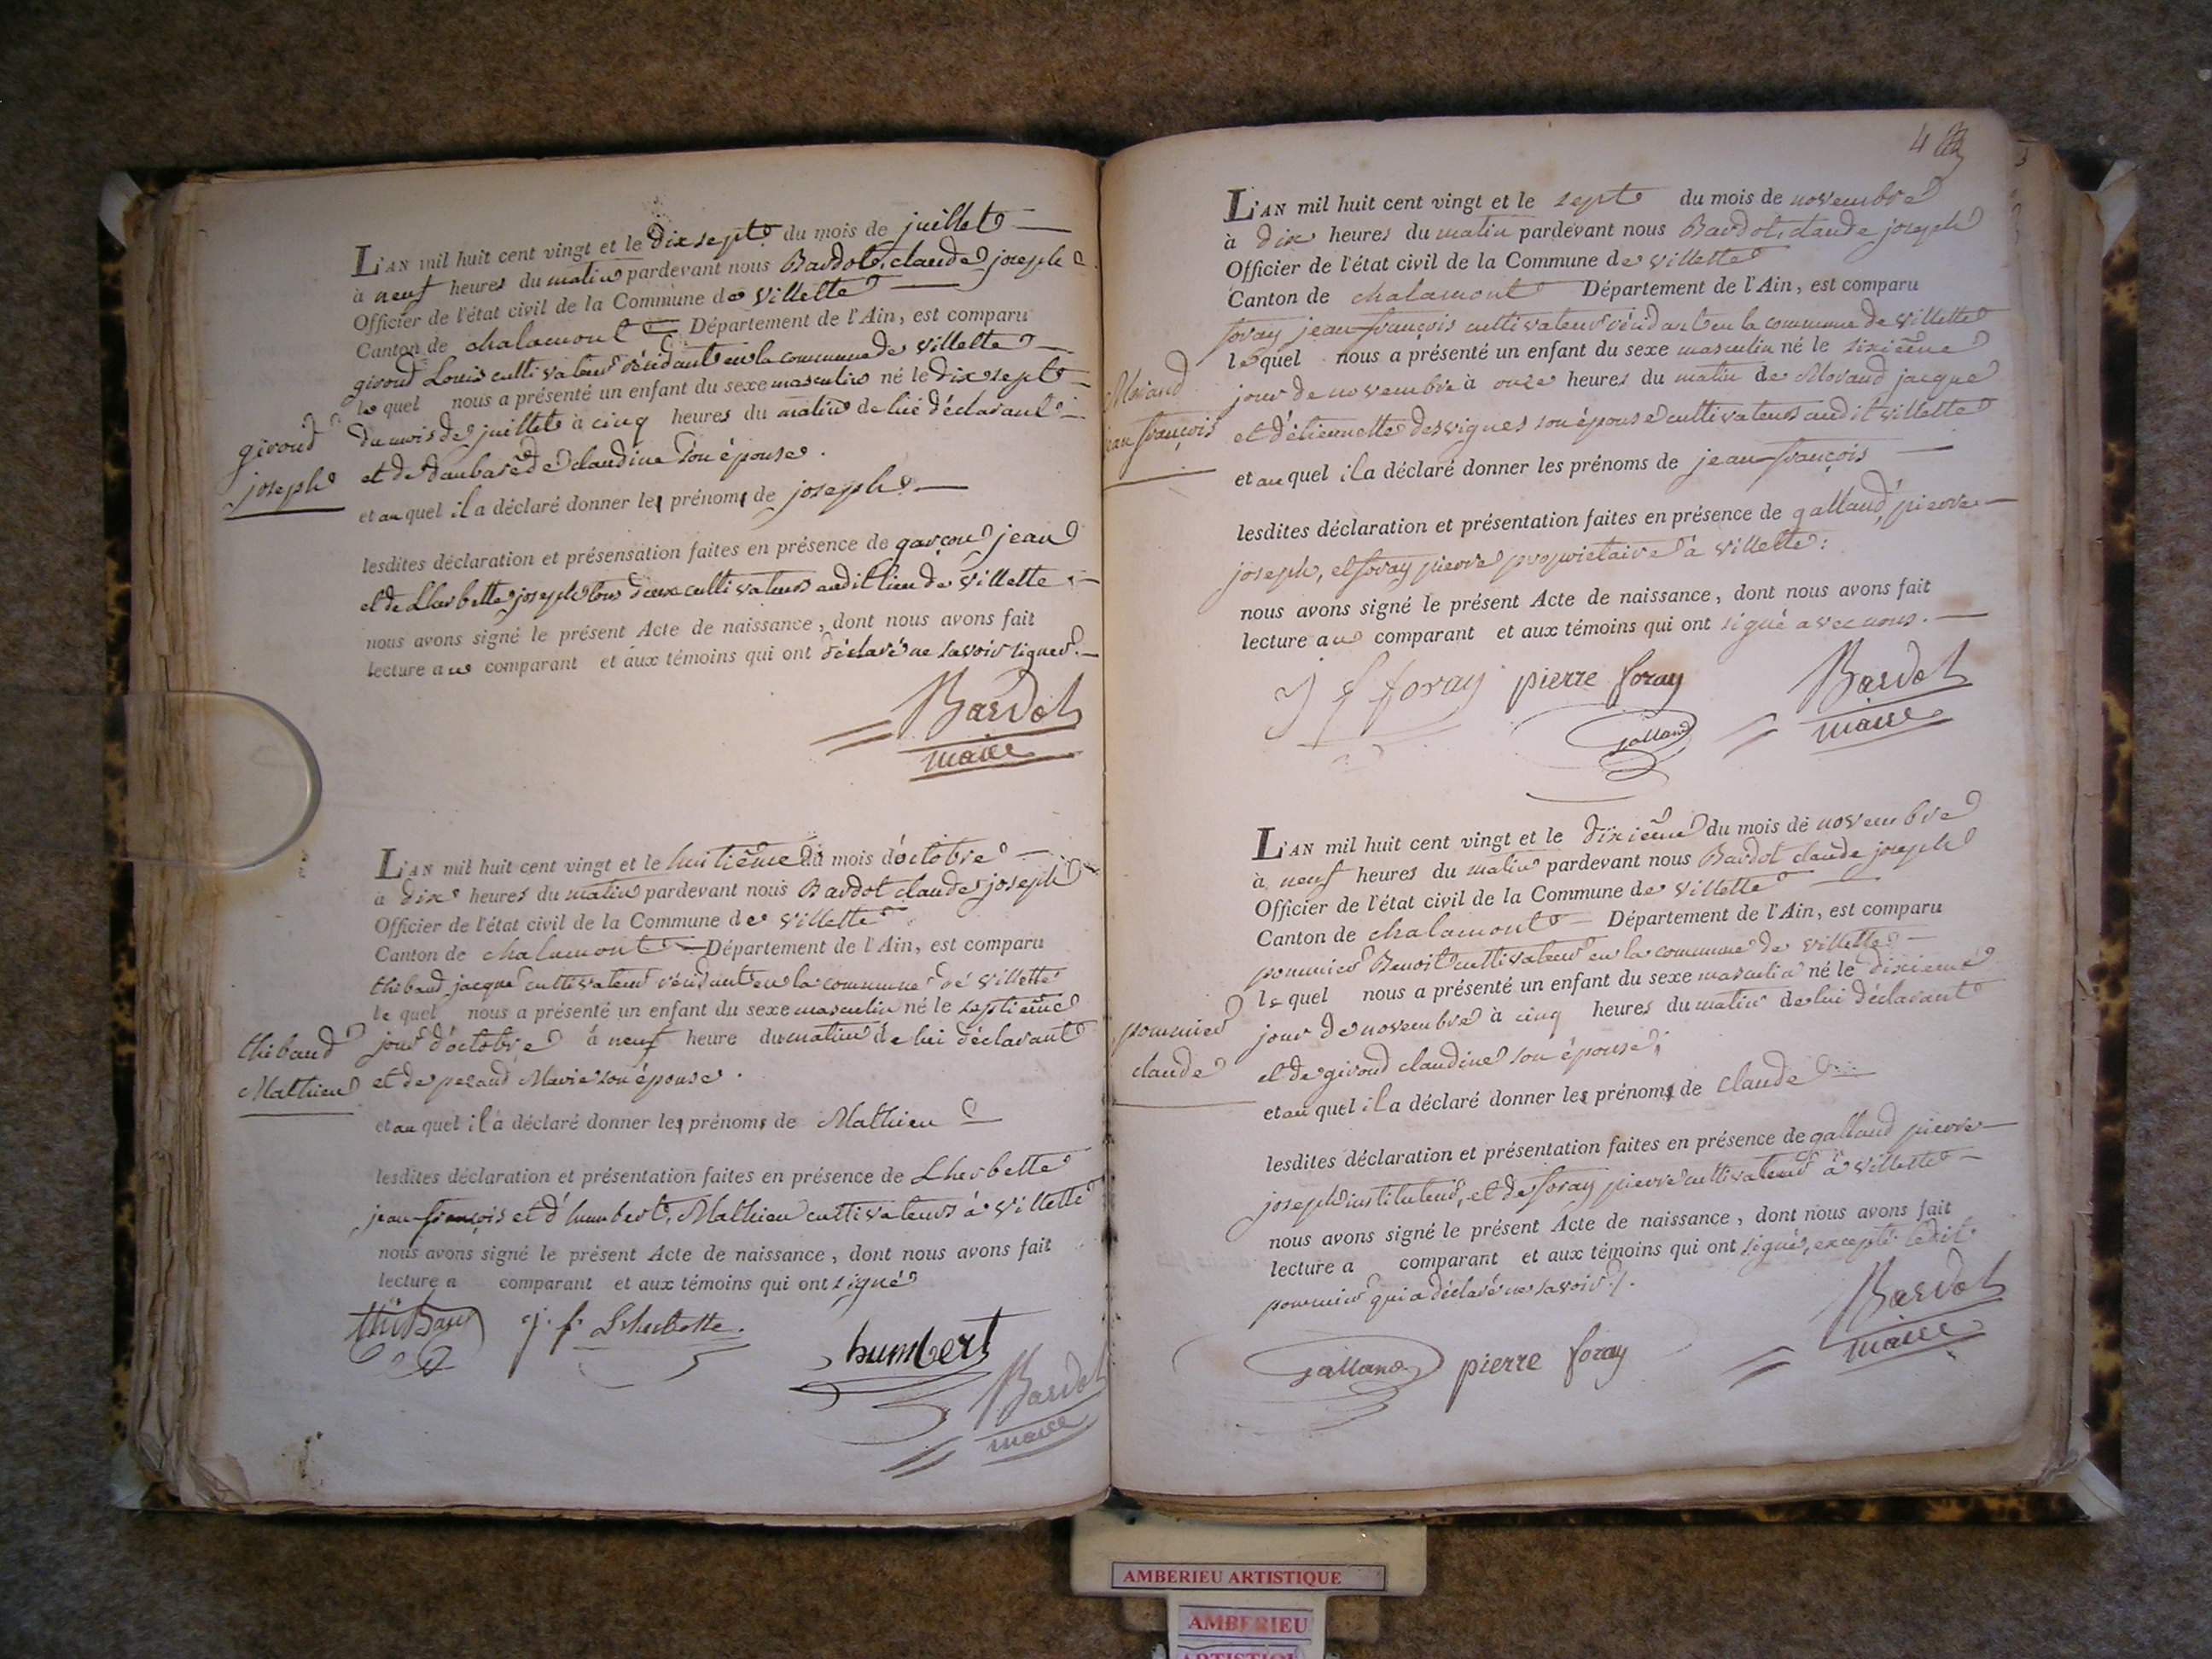 L'AN mil huit cent vingt et le dix sept du mois de juillet
à neuf heures du matin pardevant nous Bardot, claude joseph
Officier de l'état civil de la Commune de villette
Canton de chalamont Département de l'Ain, est comparu
giroud Louis cultivateur résidant en la commune de villette
le quel nous a présenté un enfant du sexe masculin né le dix sept
du mois de juillet à cinq heures du matin de lui déclarant
giroud
joseph
et de claudine son épouse.
et au quel il a déclaré donner les prénoms de joseph
lesdites déclaration et présensation faites en présence de garçon jean
et de Lherbette joseph tous deux cultivateurs audit lieu de villette
nous avons signé le présent Acte de naissance, dont nous avons fait
lecture au comparant et aux témoins qui ont déclaré ne savoir signer.
Bardot
maire
L'AN mil huit cent vingt et le huitième du mois d'octobre
à dix heures du matin pardevant nous Bardot claude joseph
Officier de l'état civil de la Commune de villette
Canton de chalamont Département de l'Ain, est comparu
thibaud jacque cultivateur résidant en la commune de villette
le quel nous a présenté un enfant du sexe masculin né le septième
thibaud
Mathieu
jour d'octobre à neuf heure du matin de lui déclarant
et de peraud Marie son épouse.
et au quel il a déclaré donner les prénoms de Mathieu
lesdites déclaration et présentation faites en présence de Lherbette
jean françois et d'humbert, Mathieu cultivateurs à villette
nous avons signé le présent Acte de naissance, dont nous avons fait
lecture a comparant et aux témoins qui ont signé
thibaud j. f. Lherbette.
humbert
Bardot
maire
4
L'AN mil huit cent vingt et le sept du mois de novembre
à dix heures du matin pardevant nous Bardot, claude joseph
Officier de l'état civil de la Commune de villette
Canton de chalamont Département de l'Ain, est comparu
foray jean françois cultivateur résidant en la commune de villette
le quel nous a présenté un enfant du sexe masculin né le sixième
Morand
jean françois
jour de novembre à onze heures du matin de Morand jacque
et d'étiennette desvignes son épouse cultivateurs audit villette
et au quel il a déclaré donner les prénoms de jean françois
lesdites déclaration et présentation faites en présence de galland, pierre
joseph, et foray pierre propriétaire à villette:
nous avons signé le présent Acte de naissance, dont nous avons fait
lecture au comparant et aux témoins qui ont signé avec nous.
J f foray pierre foray
galland
Bardot
maire
L'AN mil huit cent vingt et le dixième du mois de novembre
à neuf heures du matin pardevant nous Bardot claude joseph
Officier de l'état civil de la Commune de villette
Canton de chalamont Département de l'Ain, est comparu
pommier Benoit cultivateur en la commune de villette
le quel nous a présenté un enfant du sexe masculin né le dixième
pommier
claude
jour de novembre à cinq heures du matin de lui déclarant
et de giroud claudine son épouse;
et au quel il a déclaré donner les prénoms de claude
lesdites déclaration et présentation faites en présence de galland pierre
joseph instituteur, et de foray pierre cultivateur à villette
nous avons signé le présent Acte de naissance, dont nous avons fait
lecture a comparant et aux témoins qui ont signé, excepté ledit
pommier qui a déclaré ne savoir
galland pierre foray
Bardot
maire
AMBERIEU ARTISTIQUE
AMBERIEU
ARTISTIQUE